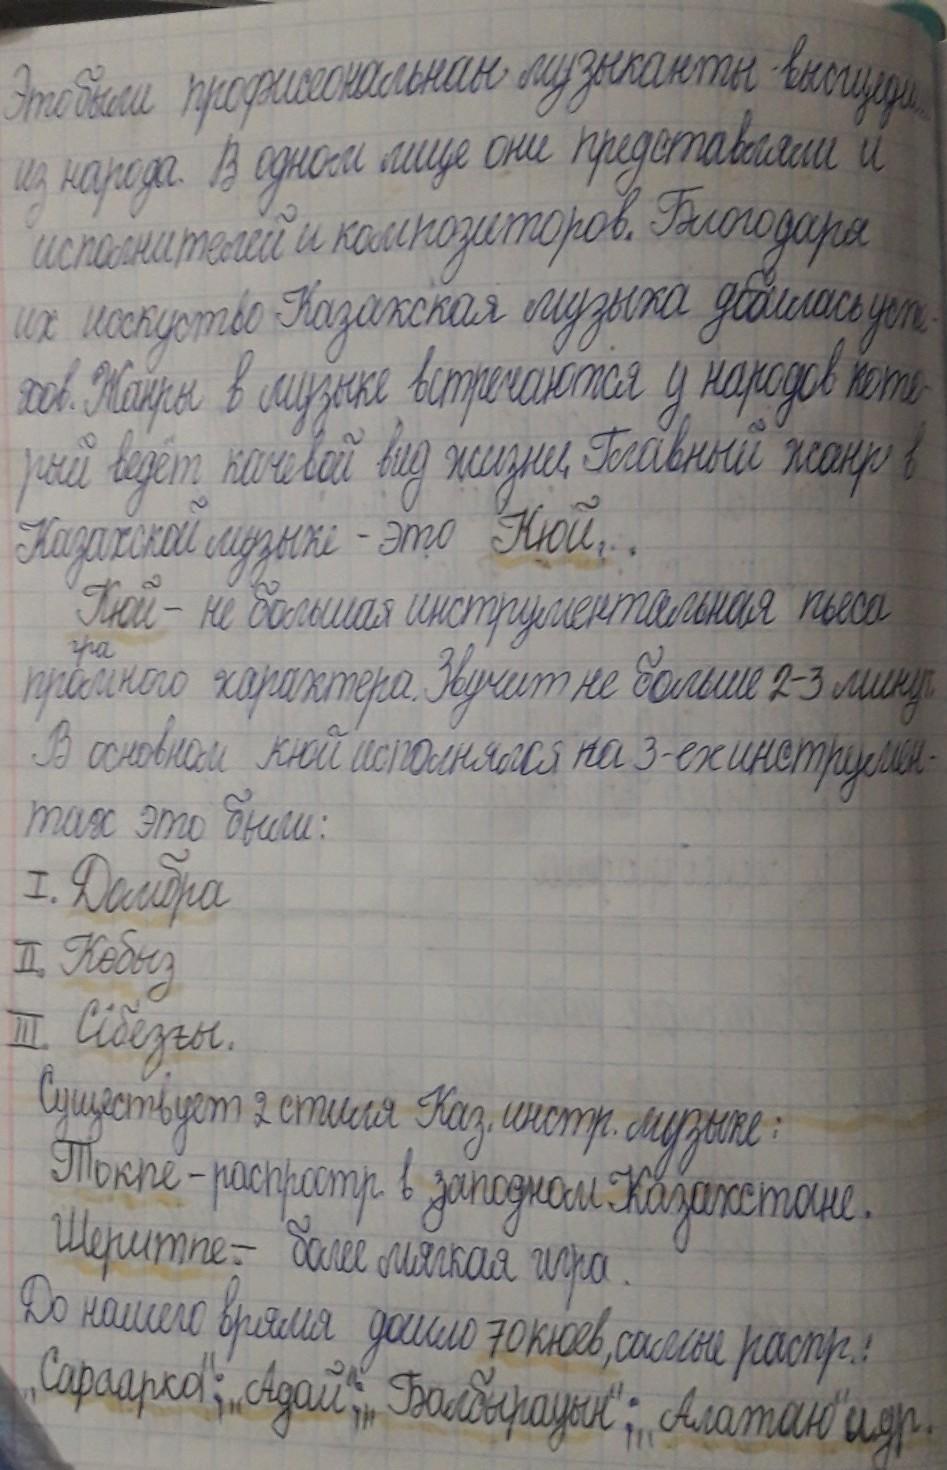 Это были профисиональныы музыканты - высщеди...
из народа. В одном лице они представляли и
исполнителей и композиторов. Блогодаря
их иоскуство Казакская музыка дбоилась успе-
хов. Жанры в музыке встречаются у народов кото-
рый ведёт качевой вид жизни. Главный жанр в
Казахской музыке - это Кюй...
Кюй - не большая инструментальная пьеса
гра
промного характера. Звучит не больше 2-3 минут.
В основном кюй исполнялся на 3-ех инструмен-
тах это были:
I. Домбра
II. Кобыз
III. Сібезғы.
Существует 2 стиля Каз. инстр. музыке:
Токпе - распростр. в заподном Казахстане.
Шеритпе - более мягкая игра.
До нашего врямя дошло 70 кюев, самые распр.:
„Сараарка"; „Адай"; „Балбырауын"; „Алатаю" и др.